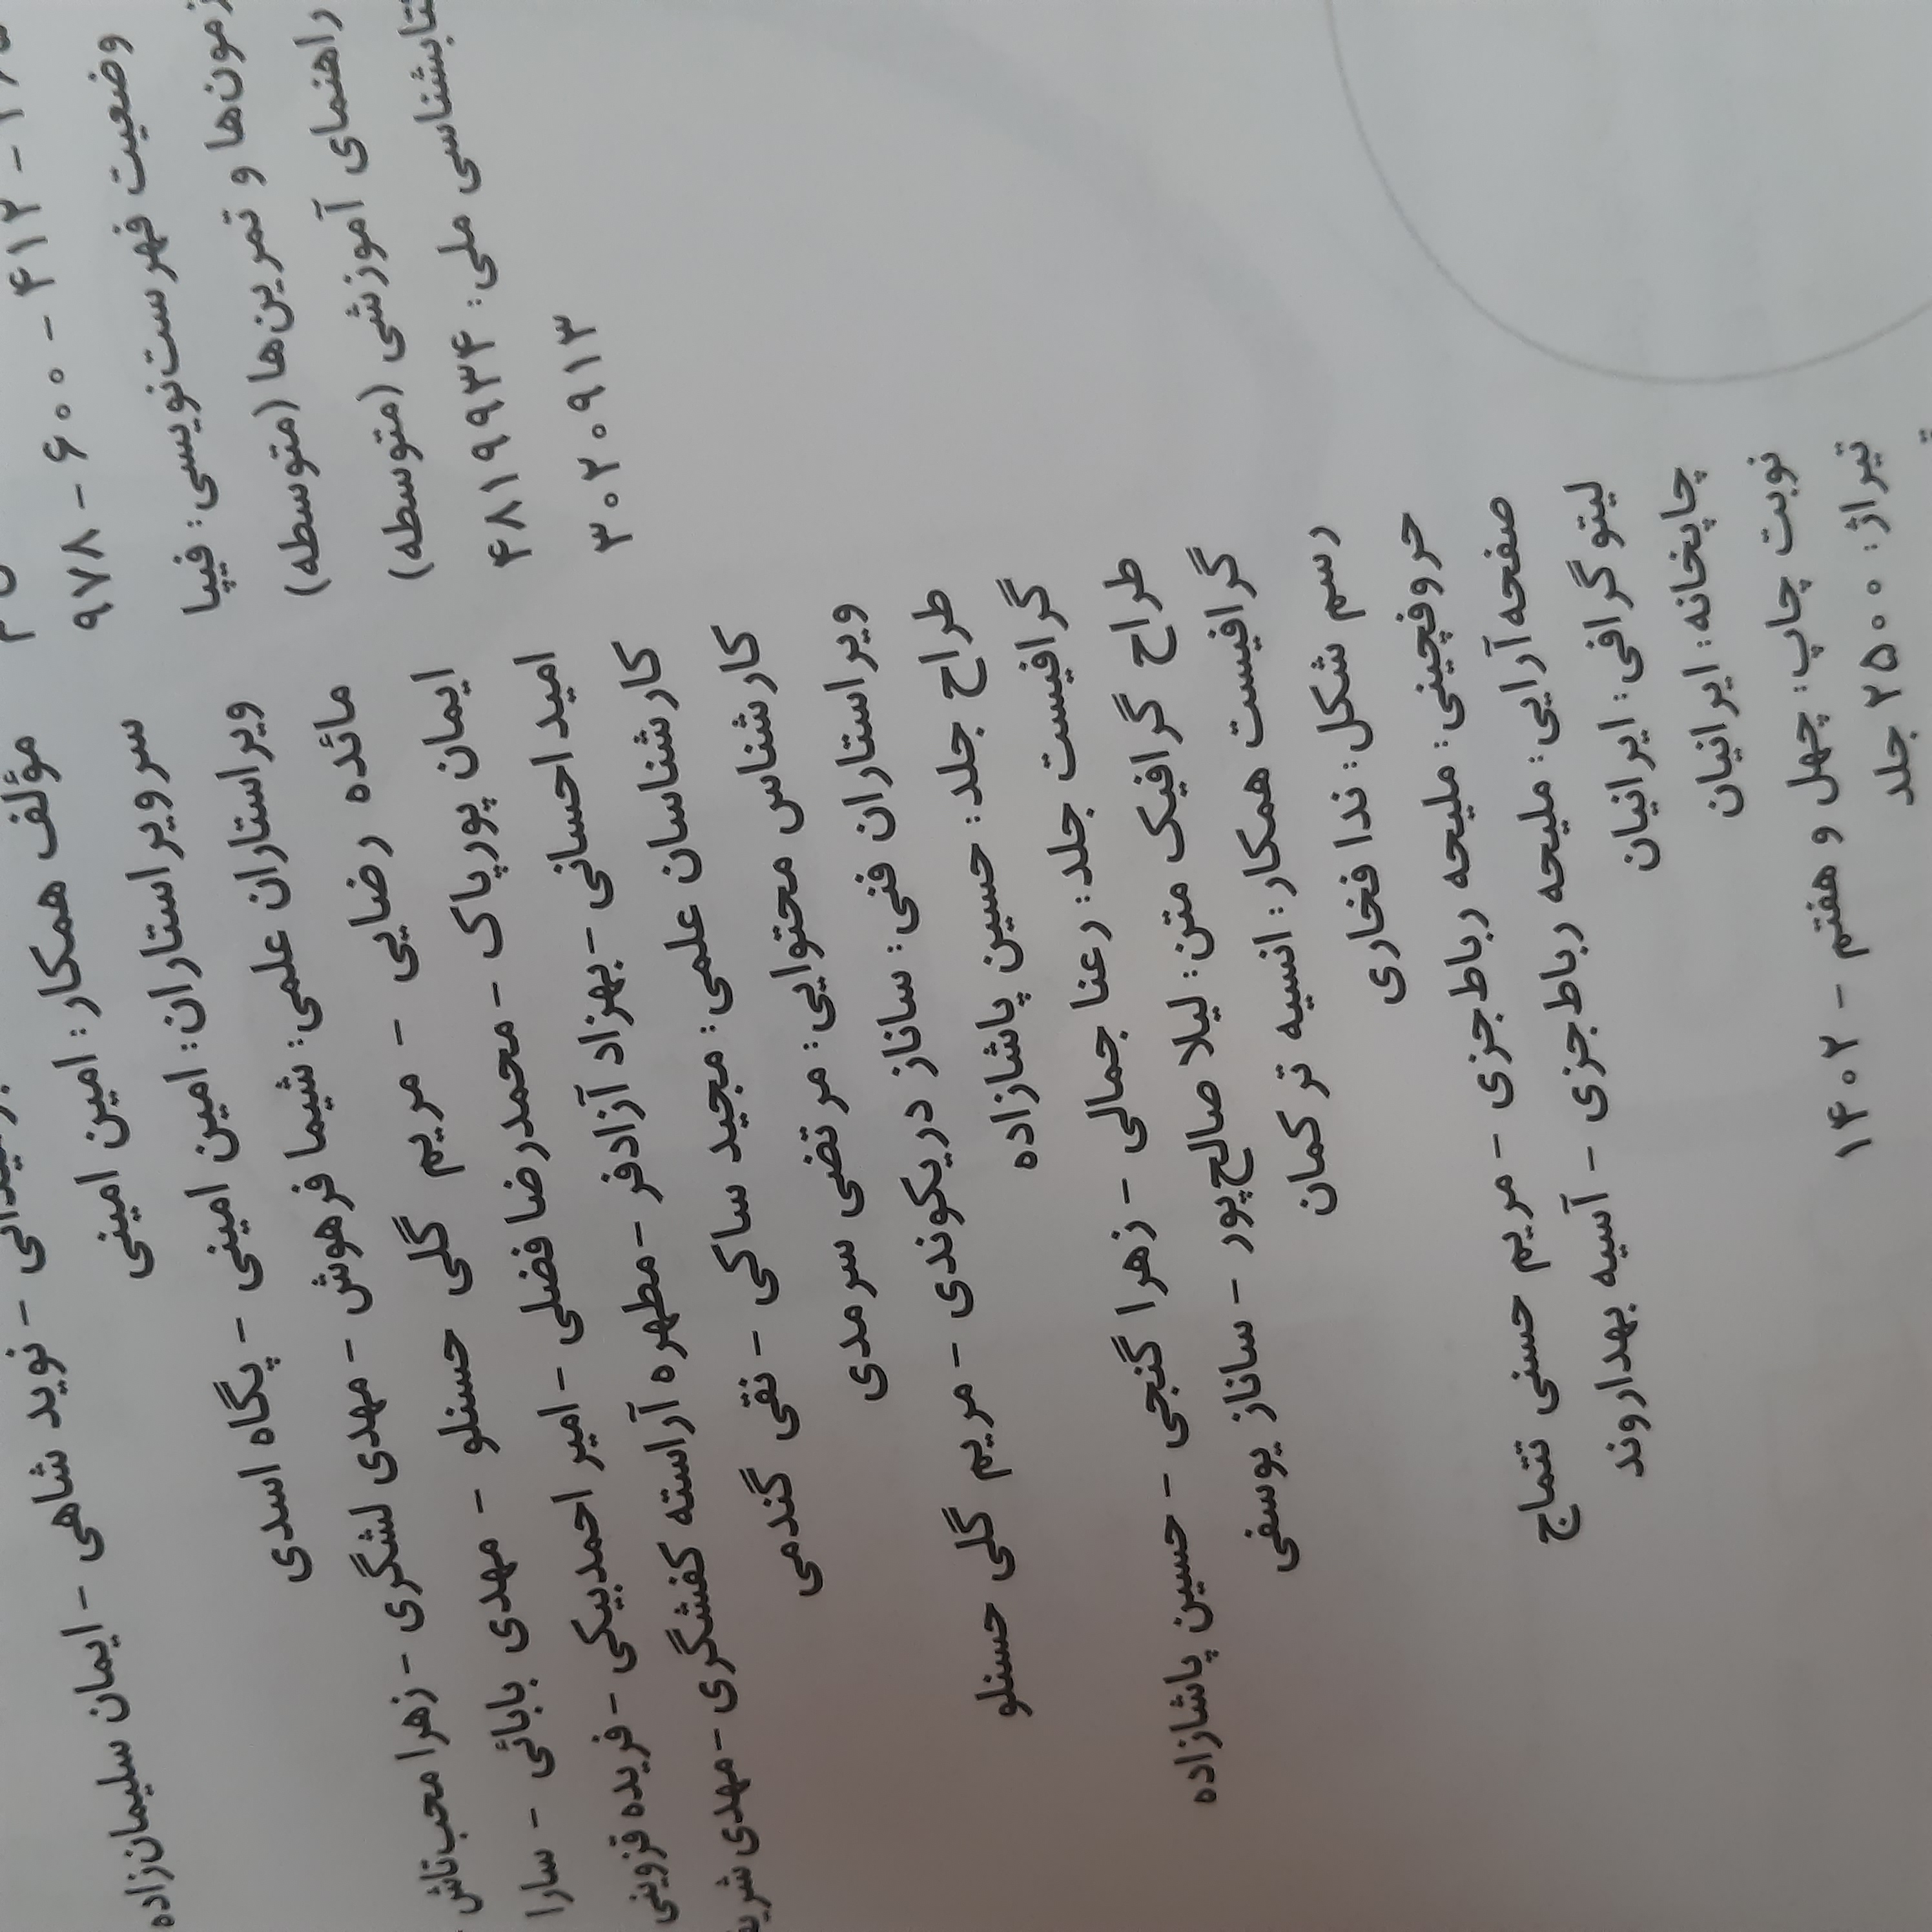 ۹۷۸ - ۶۰۰ - ۴۱۲ -
وضعیت فهرست‌نویسی: فیپا
و تمرین‌ها (متوسطه)
راهنمای آموزشی (متوسطه)
ملی: ۴۸۱۹۹۳۴
۳۰۲۰۹۱۳
- نوید شاهی - ایمان سلیمان‌زاده
مؤلف همکار: امین امینی
سرویراستاران: امین امینی - پگاه اسدی
ویراستاران علمی: شیما فرهوش - مهدی لشگری - زهرا محب‌تاش -
مائده رضایی - مریم گلی حسنلو - مهدی بابائی - سارا
ایمان پورپاک - محمدرضا فضلی - امیر احمدبیکی - فریده قزوینی
امید احسانی - بهزاد آزادفر - مطهره آراسته کفشگری - مهدی
کارشناسان علمی: مجید ساکی - نقی گندمی
کارشناس محتوایی: مرتضی سرمدی
ویراستاران فنی: ساناز دریکوندی - مریم گلی حسنلو
طراح جلد: حسین پاشازاده
گرافیست جلد: رعنا جمالی - زهرا گنجی - حسین پاشازاده
طراح گرافیک متن: لیلا صالح‌پور - ساناز یوسفی
گرافیست همکار: انسیه ترکمان
رسم شکل: ندا فخاری
حروفچینی: ملیحه رباط‌جزی - مریم حسنی تتماج
صفحه‌آرایی: ملیحه رباط‌جزی - آسیه بهداروند
لیتوگرافی: ایرانیان
چاپخانه: ایرانیان
نوبت چاپ: چهل و هفتم - ۱۴۰۲
تیراژ: ۲۵۰۰ جلد